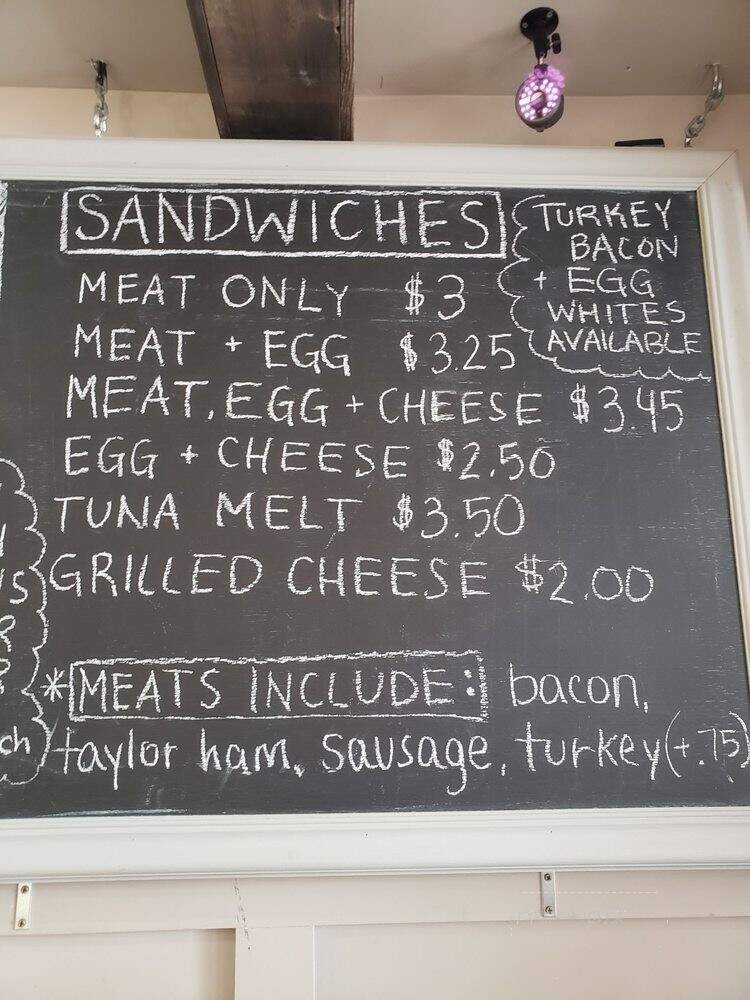 SANDWICHES
MEAT ONLY $3
MEAT + EGG $3.25
MEAT, EGG + CHEESE $3.45
EGG + CHEESE $2.50
TUNA MELT $3.50
GRILLED CHEESE $2.00
TURKEY
BACON
+ EGG
WHITES
AVAILABLE
*MEATS INCLUDE: bacon,
taylor ham, sausage, turkey (+.75)